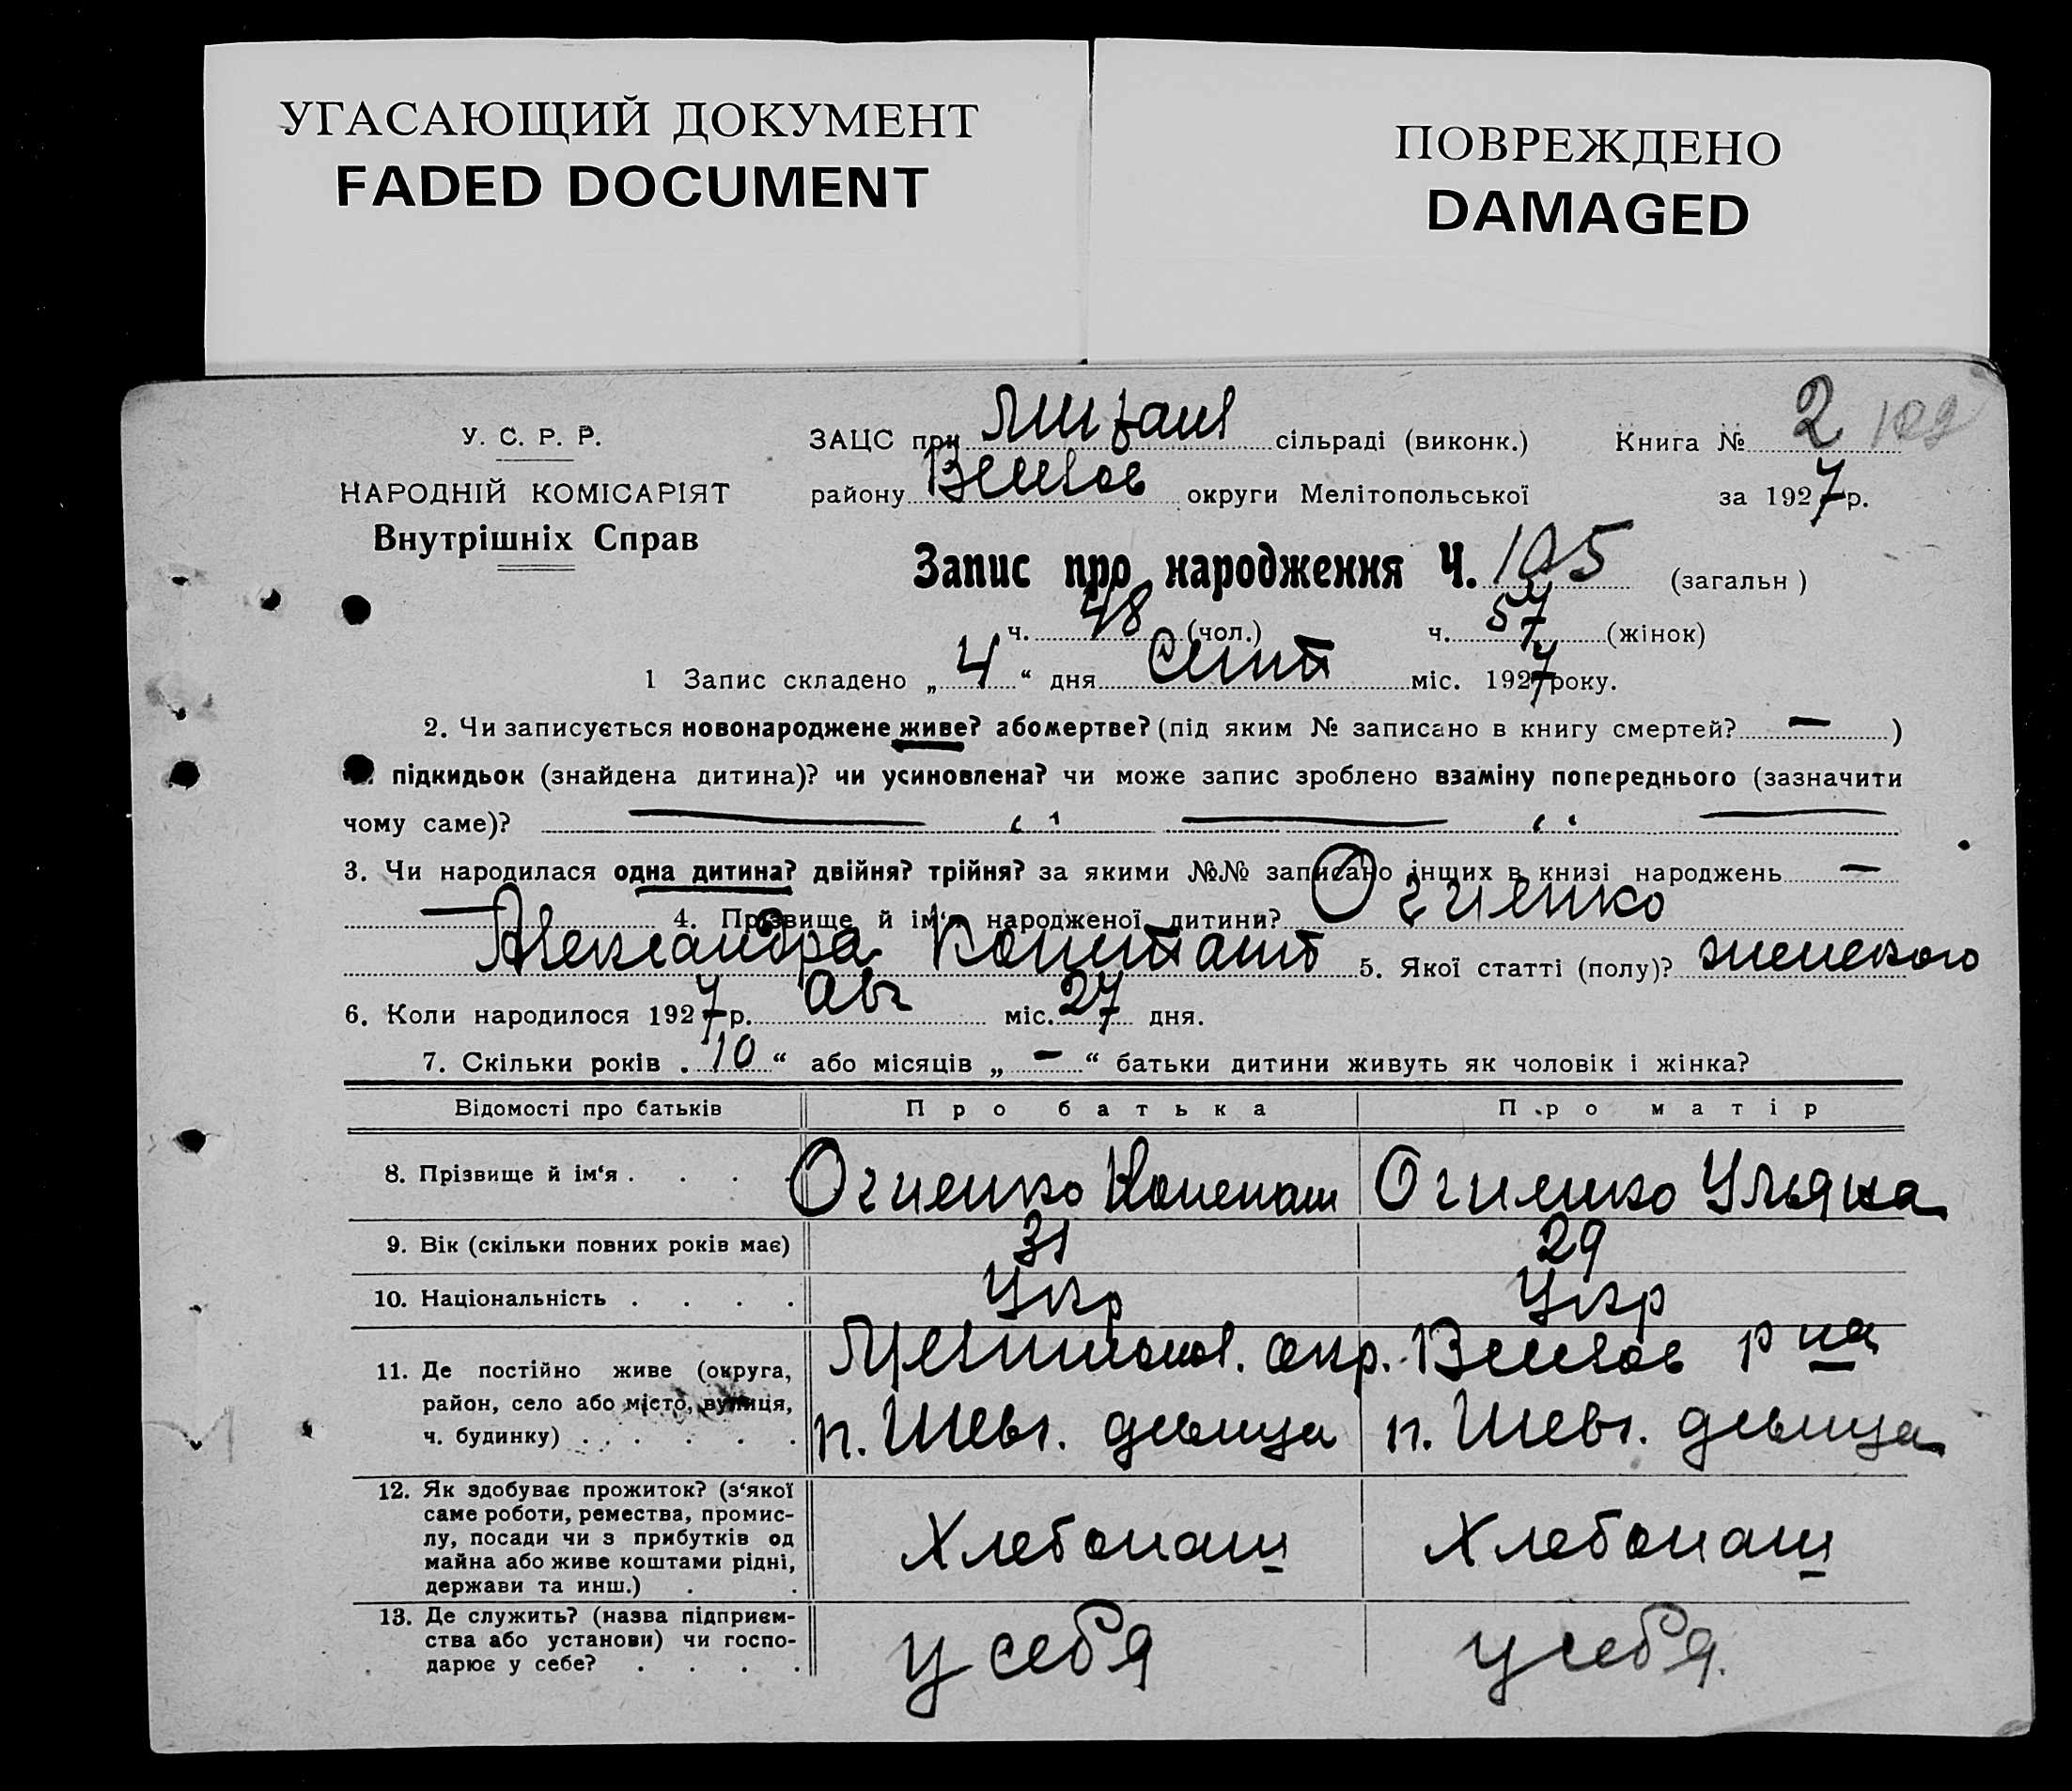 УГАСАЮЩИЙ ДОКУМЕНТ
FADED DOCUMENT
ПОВРЕЖДЕНО
DAMAGED
У. С. Р. Р.
НАРОДНІЙ КОМІСАРІЯТ
Внутрішніх Справ
ЗАЦС при сільраді (виконк.) Книга № 2
району Весьлов округи Мелітопольської за 1927 р.
Запис про народження Ч. 105 (загальн)
ч. 48 (чол.) ч. 57 (жінок)
1 Запис складено „ 4 “ дня Сент міс. 1927 року.
2. Чи записується новонароджене живе? або мертве? (під яким № записано в книгу смертей? — )
підкидьок (знайдена дитина)? чи усиновлена? чи може запис зроблено взаміну попереднього (зазначити
чому саме)?
3. Чи народилася одна дитина? двійня? трійня? за якими №№ записано інших в книзі народжень —
— 4. Прізвище й ім‘я народженої дитини? Огиенко
Александра 5. Якої статті (полу)? женского
6. Коли народилося 1927 р. Авг міс. 27 дня.
7. Скільки років „ 10 “ або місяців „ — “ батьки дитини живуть як чоловік і жінка?
Відомості про батьків Про батька Про матір
8. Прізвище й ім‘я . . . . Огиенко Огиенко Ульяна
9. Вік (скільки повних років має) 31 29
10. Національність . . . . Укр Укр
11. Де постійно живе (округа, окр. р на
район, село або місто, вулиця,
ч. будинку) . . . . . . п. Шевч. п. Шевч.
12. Як здобуває прожиток? (з‘якої
саме роботи, ремества, промис-
лу, посади чи з прибутків од Хлебопаш Хлебопаш
майна або живе коштами рідні,
держави та инш.) . .
13. Де служить? (назва підприєм-
ства або установи) чи госпо- у себя у себя.
дарює у себе? . . . .